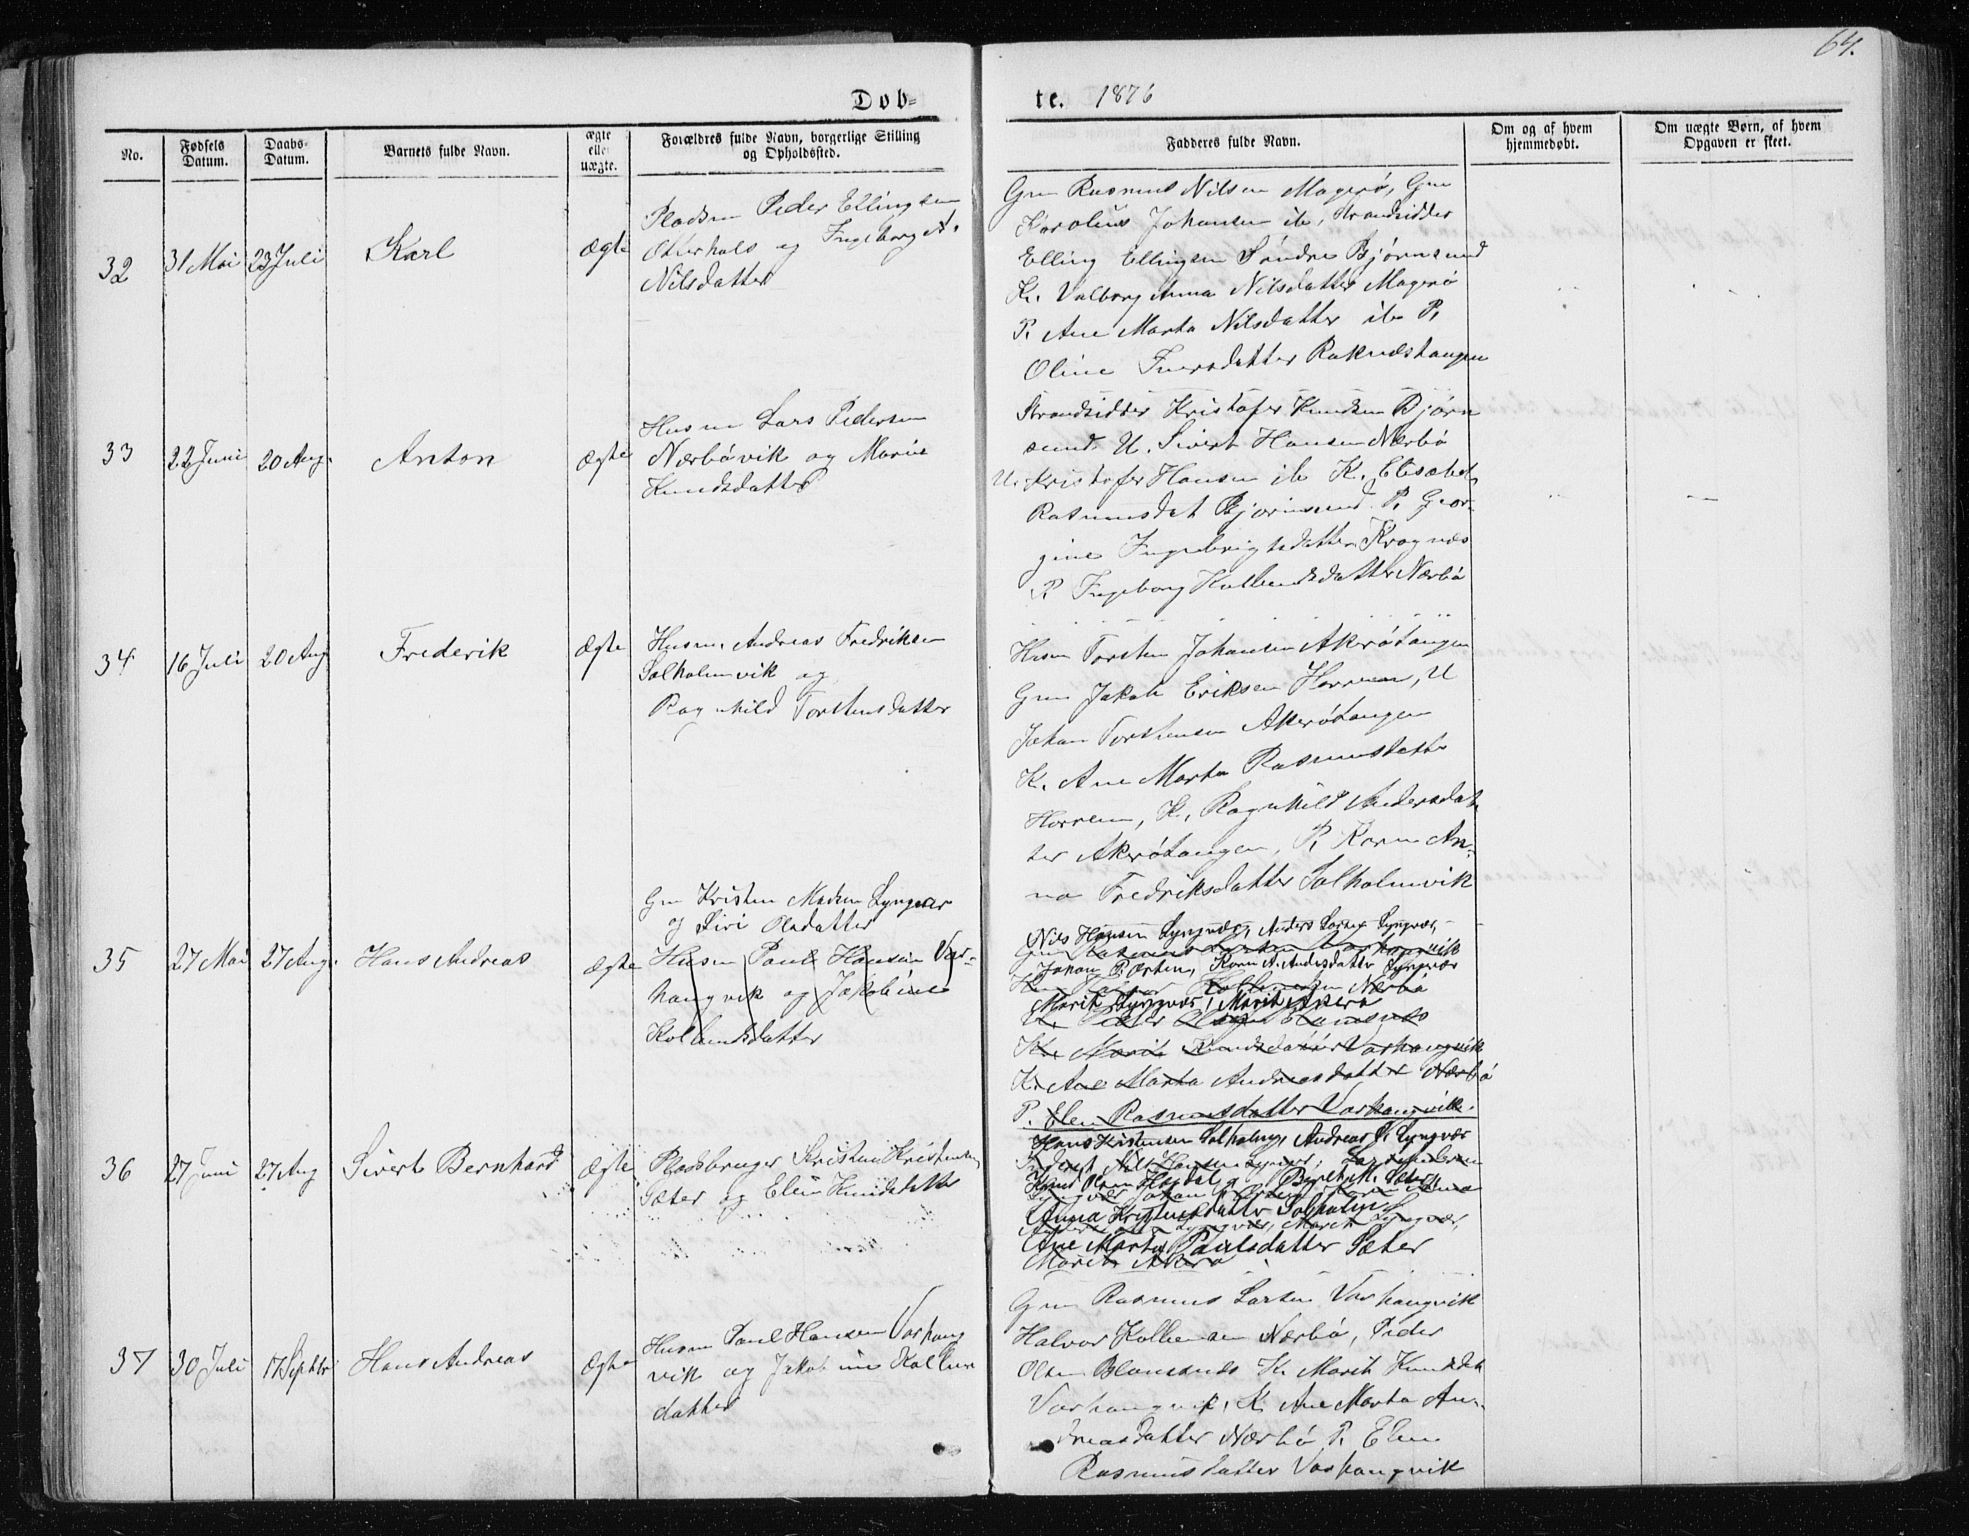 64.
Døb-
te. 1876
No.
Fødsels Datum.
Daabs-Datum.
Barnets fulde Navn.
ægte eller uægte.
Forældres fulde Navn, borgerlige Stilling og Opholdssted.
Fadderes fulde Navn.
Om og af hvem hjemmedøbt.
Om uægte Børn, af hvem Opgaven er skeet.
32
31 Mai
23 Juli
Karl
ægte
Pladsm Peder Ellingsen
Oterhals og Ingeborg A.
Nilsdatter
Gm Rasmus Nilsen Magerö, Gm
Karolius Johansen ib, Strandsidder
Elling Ellingsen Söndre Björnsund
K. Valborg Anna Nilsdatter Magerö
P. Ane Marta Nilsdatter ib P.
Oline Iversdatter Raknestangen
33
22 Juni
20 Aug.
Anton
ægte
Husm Lars Pedersen
Nærbövik og Marie
Knudsdatter
Strandsidder Kristofer Knudsen Björn
sund U. Sivert Hansen Nærbö
U. Kristofer Hansen ib K. Elisabet
Rasmusdat Bjornsund P. Geor-
gine Ingebrigtsdatter Kragnæs
P. Ingeborg Kolbensdatter Nærbö
34
16 Juli
20 Aug
Frederik
Ægte
Husm. Andreas Fredriksen
Solholmvik og
Ragnhild Torstensdatter
Husm Torsten Johansen Akerötangen
Gm Jakob Eriksen Horrem, U
Johan Torstensen Akerötangen
K. Ane Marta Rasmusdatter
Horrem, K. Ragnhild Andersdat
ter Akerötangen, P. Karen An-
na Fredriksdatter Solholmvik
35
27 Mai
27 Aug.
Hans Andreas
Ægte
Gm Kristen Madsen Lyngvær
og Siri Olsdatter
Husm Paul Hansen Var-
hangvik og Jakobine
Kolbensdatter
Nils Hansen Lyngvær, Anders Larsen Lyngvær,
Gm Rasmus Larsen Varhangvik
Johan P. Ærsten, Karen A. Andersdatter Lyngvær
Kolbensen Nærbö
Marit Lyngvær, Marit Akerö
Peder Olsen Blomsnes
K. Marit Knudsdatter Varhangvik
K. Ane Marta Andreasdatter Nærbö
P. Elen Rasmusdatter Varhangvik.
36
27 Juni
27 Aug
Sivert Bernhard
Ægte
Pladsbruger Kristen Kristensen
Sæter og Elen Knudsdatter
Hans Kristensen Solholm, Andreas P. Lyngvær
Nils Hansen Lyngvær, Lars Andersen
Knud Olsen Hoxdal, Beret M. Sæter,
Lyngvær Johan
Anna Kristensdatter Solholm
Lyngvær, Marit Lyngvær,
Ane Marta Paulsdatter Sæter
Marit Akerö
37
30 Juli
17 Septbr
Hans Andreas
Ægte
Husm Paul Hansen Varhang
vik og Jakobine Kolben
datter
Gm Rasmus Larsen Varhangvik
Halvor Kolbensen Nærbö, Peder
Olsen Blomsnes K. Marit Knudsdat
Varhangvik, K. Ane Marta An-
dreasdatter Nærbö P. Elen
Rasmusdatter Varhangvik